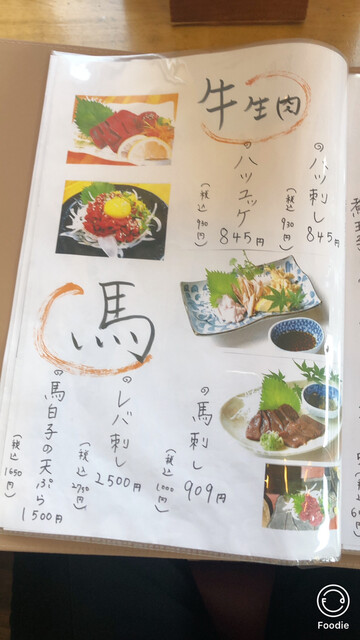 牛生肉
ハツ刺し 845円
(税込 930円)
ハツユッケ 845円
(税込 930円)
馬
馬刺し 909円
(税込 1,000円)
レバ刺し 2500円
(税込 2750円)
馬白子の天ぷら 1500円
(税込 1650円)
Foodie